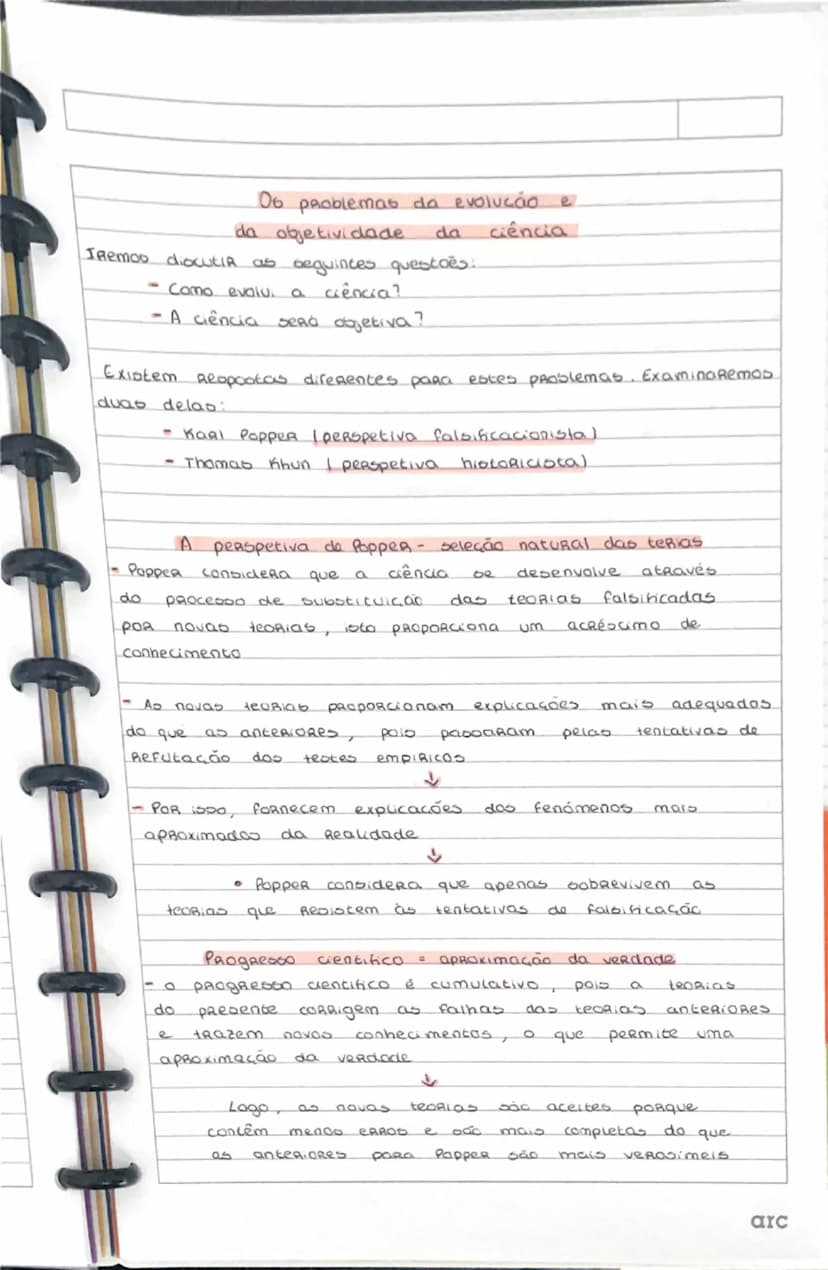 Os problemas da evolução e
da objetividade da ciência
Iremos discutir as seguintes questoēs:
- Como evolui a ciência?
- A ciência será objetiva?
Existem respostas diferentes para estes problemas. Examinaremos
duas delas:
- Karl Popper (perspetiva falsificacionista)
- Thomas Khun (perspetiva historicista)
A perspetiva de Popper - seleção natural das terias
- Popper considera que a ciência se desenvolve através
do processo de substituição das teorias falsificadas
por novas teorias, isto proporciona um acréscimo de
conhecimento
- As novas teorias proporcionam explicações mais adequadas
do que as anteriores, pois passaram pelas tentativas de
refutação dos testes empíricos
↓
- Por isso, fornecem explicações dos fenómenos mais
aproximados da realidade
↓
• Popper considera que apenas sobrevivem as
teorias que resistem às tentativas de falsificação
Progresso cientifico = aproximação da verdade
- o progresso cientifico é cumulativo, pois a teorias
do presente corrigem as falhas das teorias anteriores
e trazem novos conhecimentos, o que permite uma
aproximação da verdade
↓
Logo, as novas teorias são aceites porque
contêm menos erros e são mais completas do que
as anteriores para Popper são mais verosímeis
arc